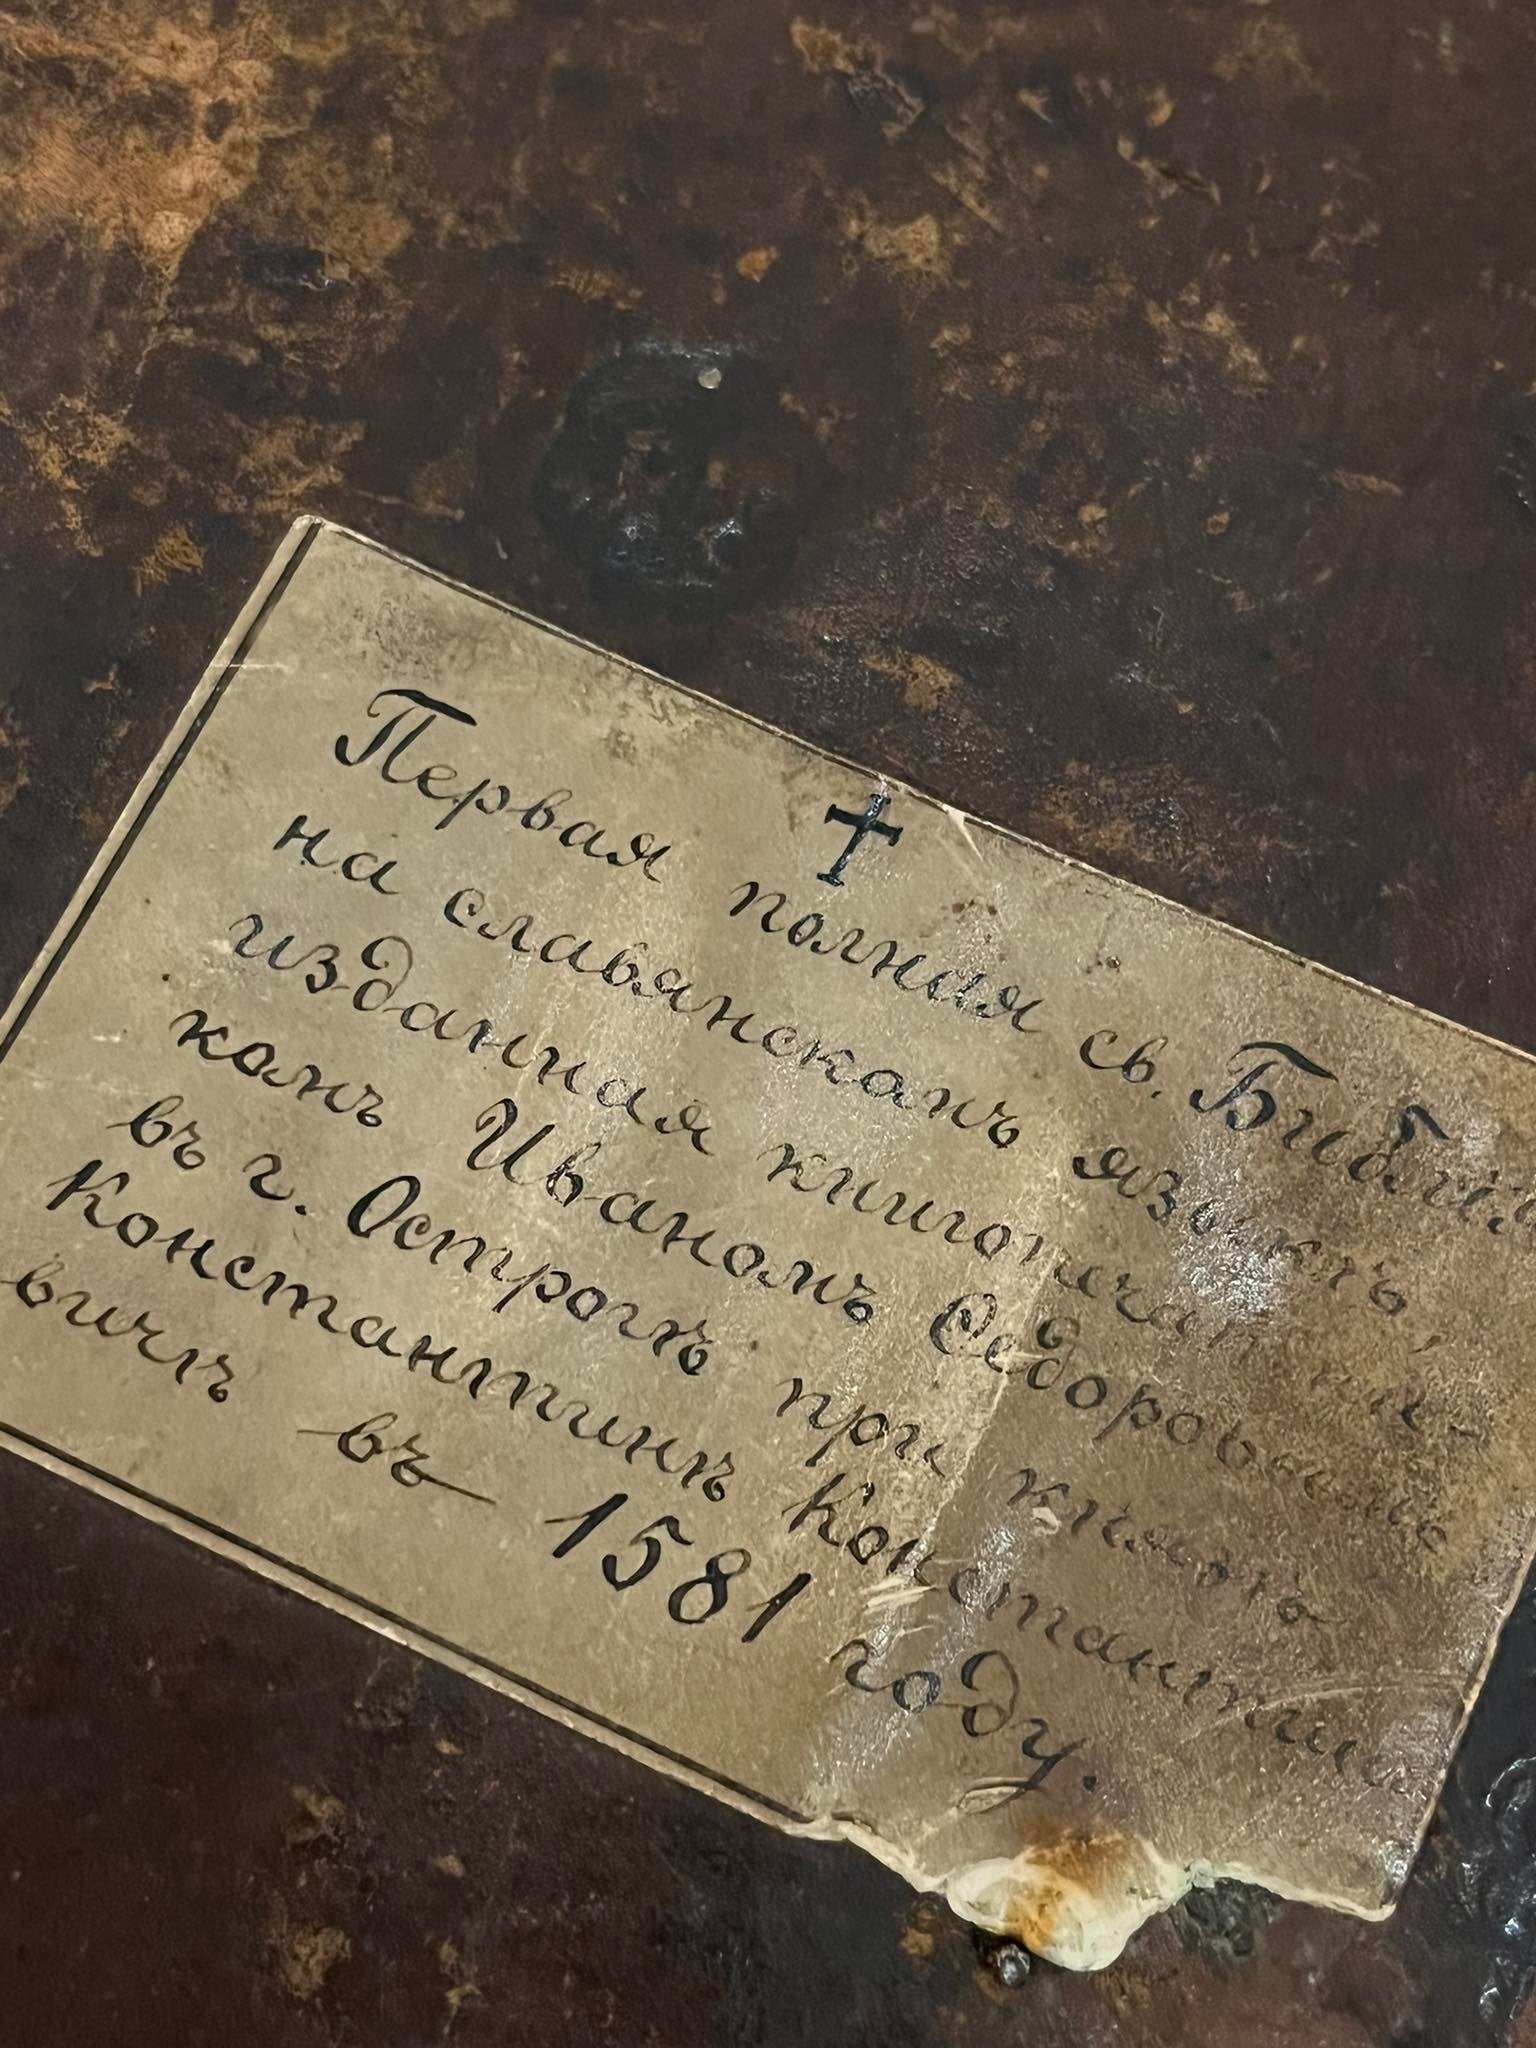 ✝
Первая полная св. Библія
на славянскомъ языкѣ,
изданная книгопечатни-
комъ Иваномъ Ѳедоровымъ
въ г. Острогѣ при князѣ
Константинѣ Константино
вичѣ въ 1581 году.